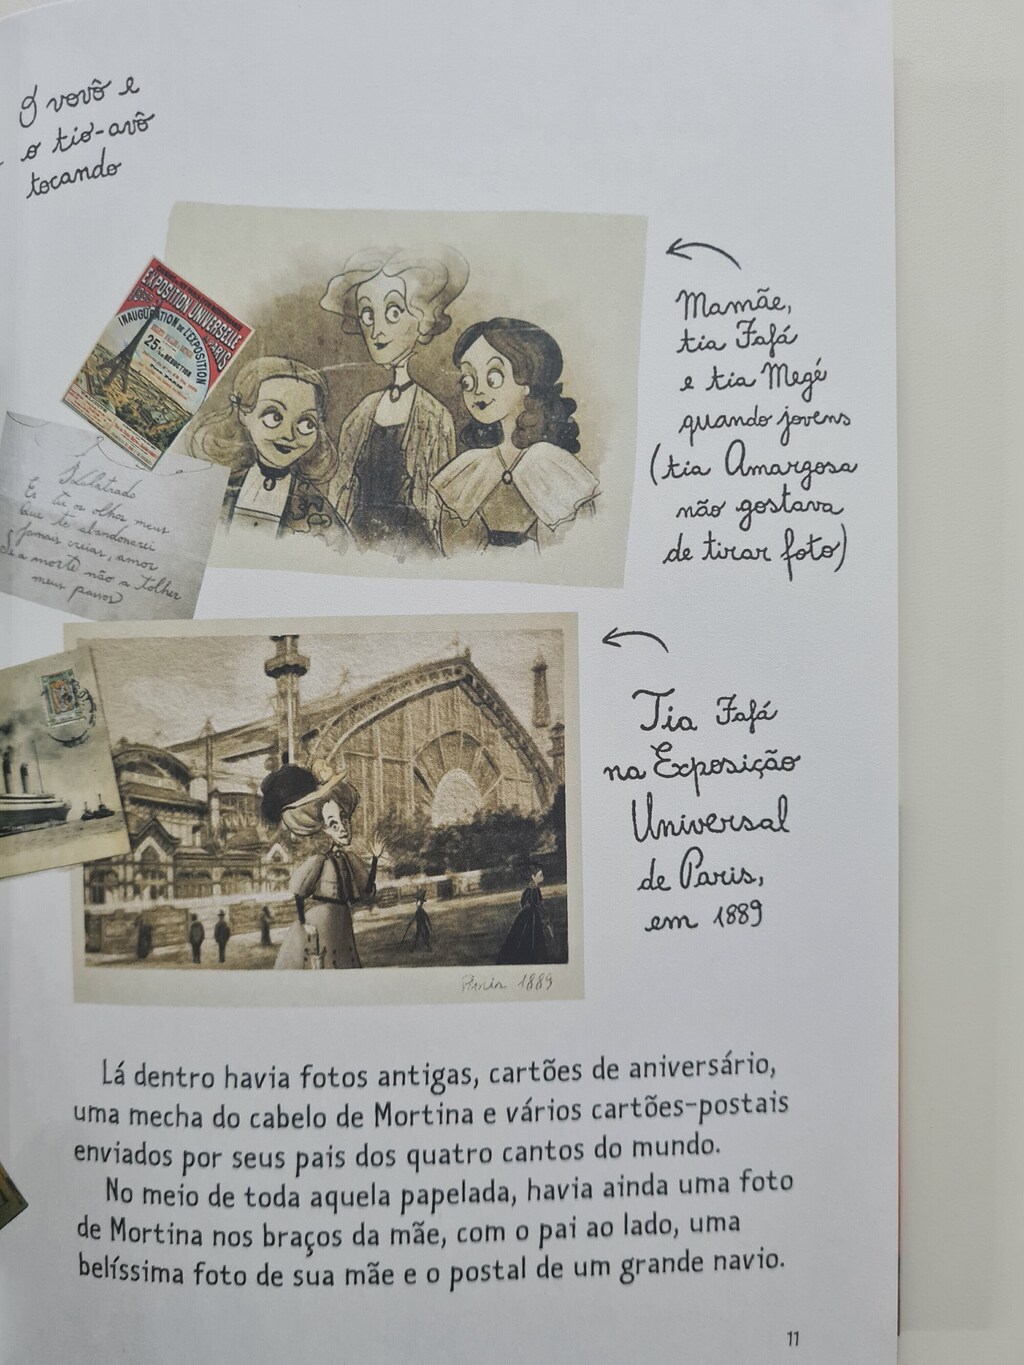 O vovô e
o tio-avô
tocando
EXPOSITION UNIVERSELLE
PARIS
INAUGURATION DE L'EXPOSITION
25% RÉDUCTION
Mamãe,
tia Fafá
e tia Megé
quando jovens
(tia Amargosa
não gostava
de tirar foto)
Ei tu a olhos meus
Que te abandonarei
Jamais creias, amor
a morte não a tolher
meus passos
Tia Fafá
na Exposição
Universal
de Paris,
em 1889
Paris 1889
Lá dentro havia fotos antigas, cartões de aniversário,
uma mecha do cabelo de Mortina e vários cartões-postais
enviados por seus pais dos quatro cantos do mundo.
No meio de toda aquela papelada, havia ainda uma foto
de Mortina nos braços da mãe, com o pai ao lado, uma
belíssima foto de sua mãe e o postal de um grande navio.
11